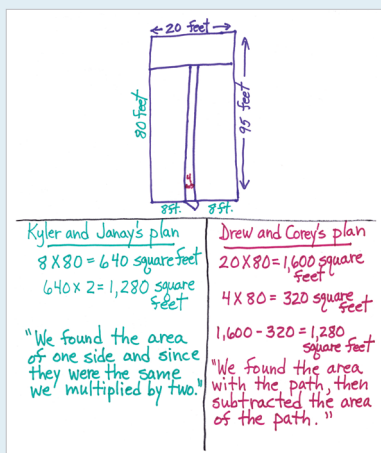 20 feet
80 feet
95 feet
4
8ft. 8ft.
Kyler and Janay's plan
8 X 80 = 640 square feet
640 x 2 = 1,280 square
feet
"We found the area
of one side and since
they were the same
we multiplied by two."
Drew and Corey's plan
20X80=1,600 square
feet
4X80= 320 square feet
1,600-320 = 1,280
square feet
"We found the area
with the path, then
subtracted the area
of the path."